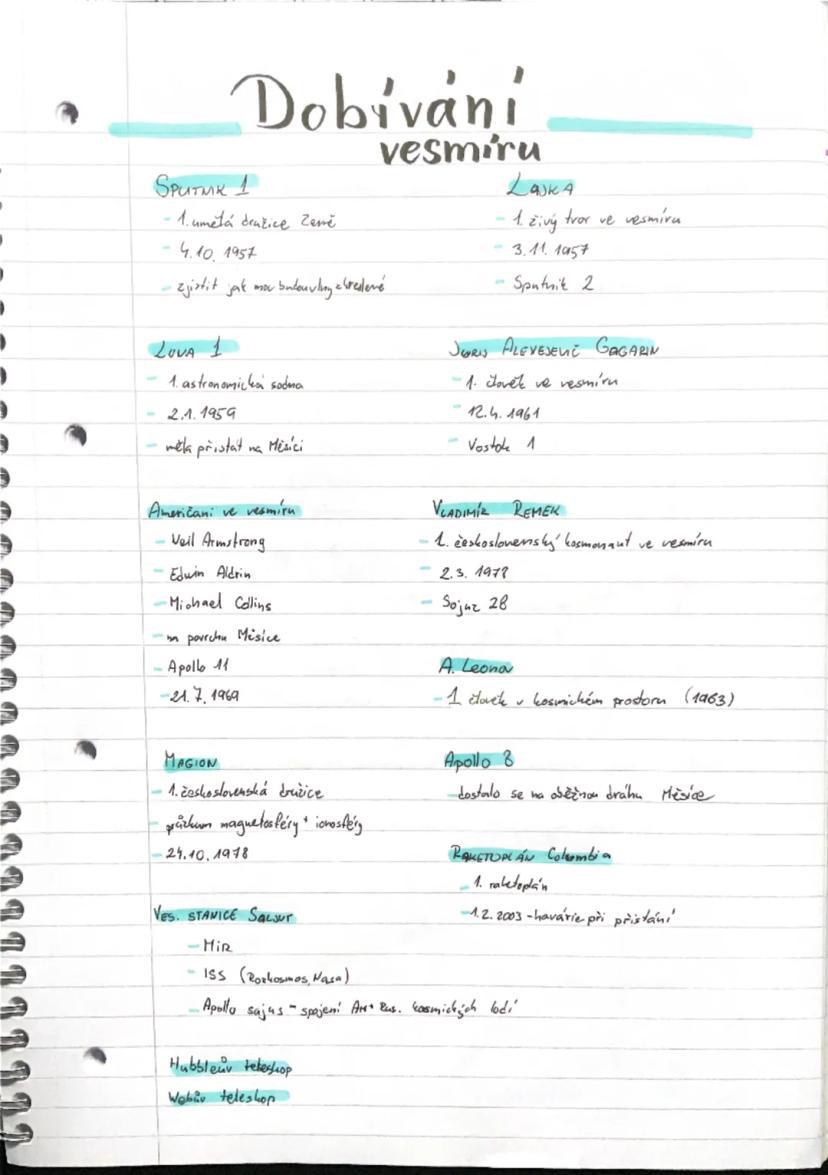 Dobívání
vesmíru
SPUTNIK 1
- 1. umělá družice Země
- 4.10. 1957
- zjistit jak mov budou vlny
LAJKA
- 1. živý tvor ve vesmíru
- 3.11. 1957
- Sputnik 2
LUNA 1
- 1. astronomická sodna
- 2.1. 1959
- měla přistát na Měsíci
JURIJ ALEVEJEVIČ GAGARIN
- 1. člověk ve vesmíru
- 12.4. 1961
- Vostok 1
Američani ve vesmíru
- Neil Armstrong
- Edwin Aldrin
- Michael Collins
- na povrchu Měsíce
- Apollo 11
- 21.7.1969
VLADIMÍR REMEK
- 1. československý kosmonaut ve vesmíru
- 2.3. 1978
- Sojuz 28
A. Leonov
- 1 člověk v kosmickém prostoru (1963)
MAGION
- 1. československá družice
- průzkum magnetosféry + ionosféry
- 24.10.1978
Apollo 8
- dostalo se na oběžnou dráhu Měsíce
RAKETOPLÁN Columbia
- 1. raketoplán
- 1.2. 2003 - havárie při přistání
VES. STANICE SALJUT
- MIR
- ISS (Rozkosmos, Nasa)
- Apollo sajus - spojení Am + Rus. kosmických lodí
Hubbleův teleskop
Webův teleskop